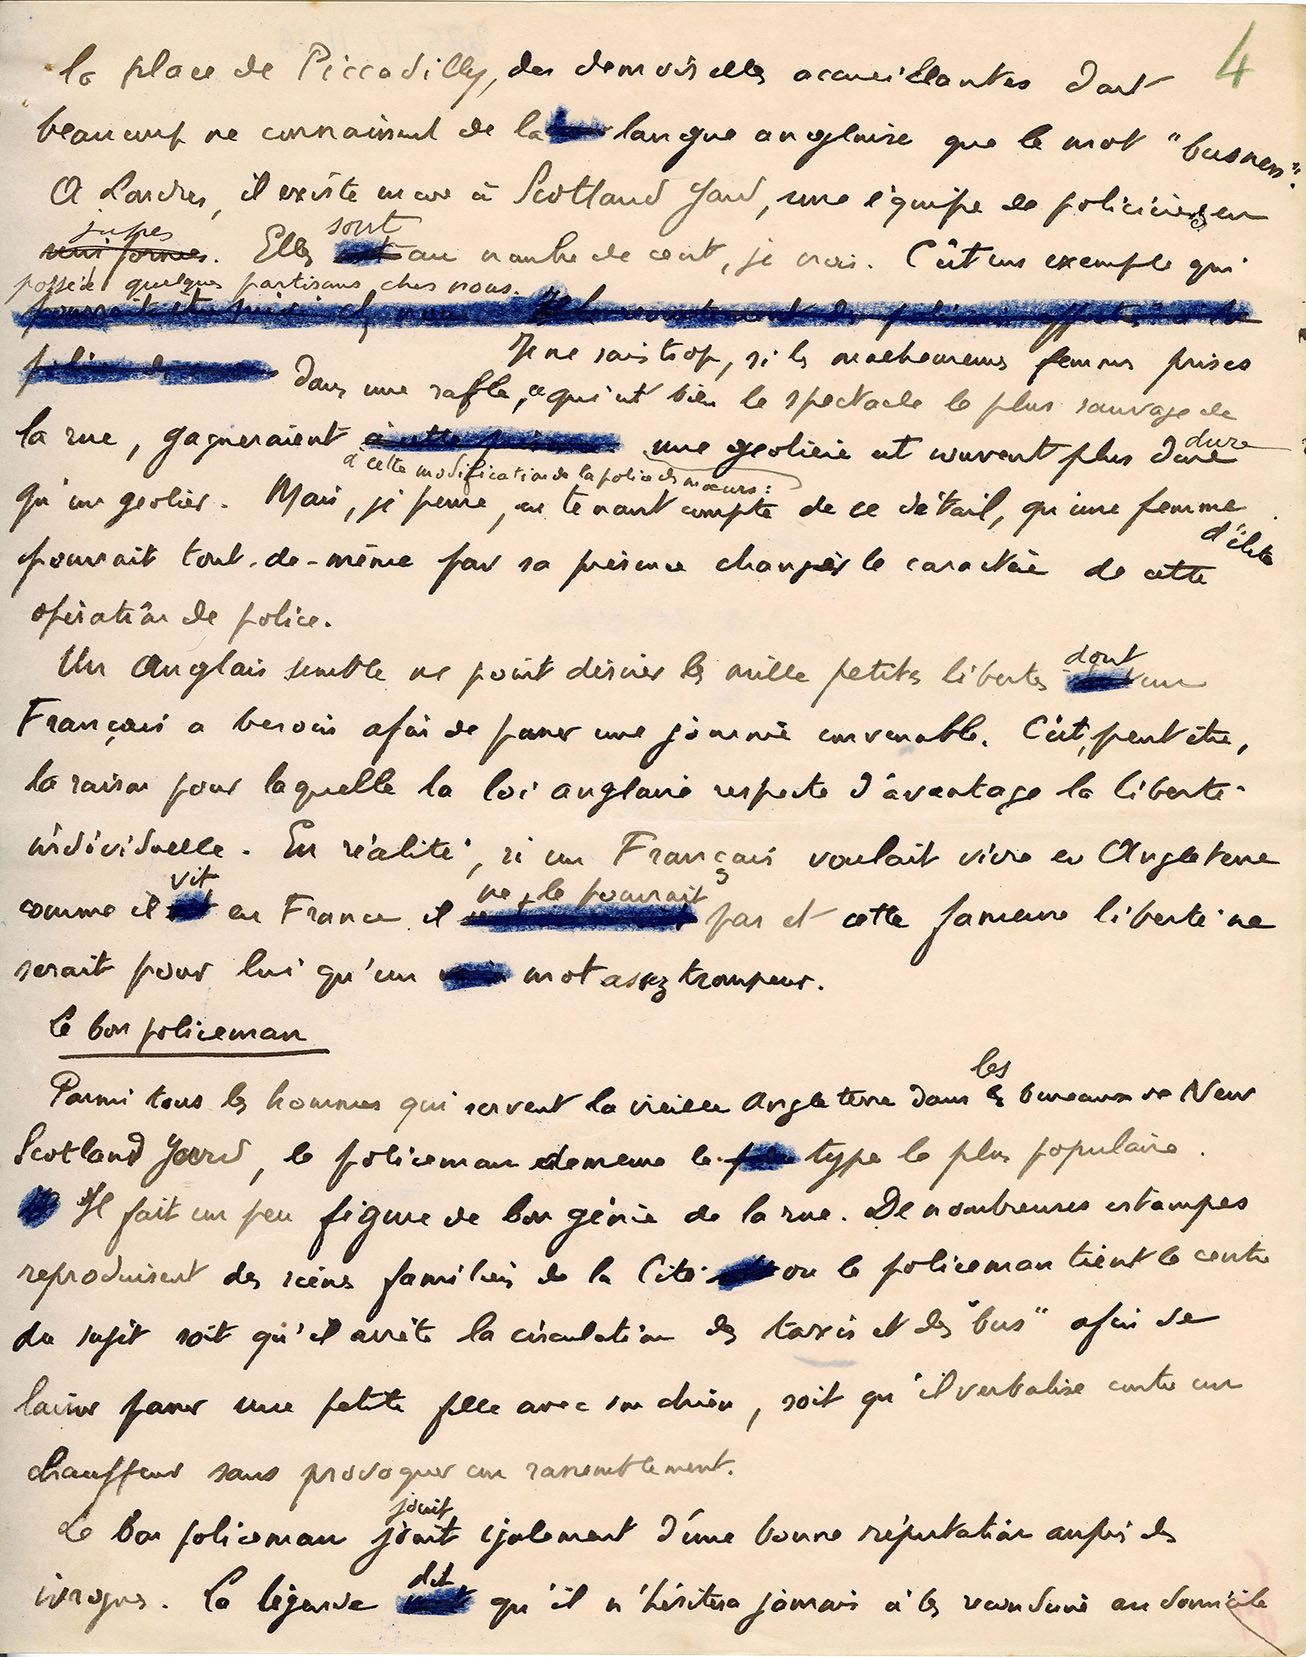 4
la place de Piccadilly, des demoiselles accueillantes dont
beaucoup ne connaissent de la langue anglaise que le mot "busness".
A Londres, il existe encore à Scotland Yard, une équipe de policiers en
jupes sont
uniformes. Elles au nombre de cent, je crois. C'est un exemple qui
possède quelques partisans chez nous.
Je ne sais trop, si les malheureuses femmes prises
dans une rafle, ce qui est bien le spectacle le plus sauvage de
la rue, gagneraient une geolière est souvent plus dure dure
à cette modification de la police des mœurs :
qu'un geolier. Mais, je pense, en tenant compte de ce détail, qu'une femme
d'élite
pourrait tout-de-même par sa présence changer le caractère de cette
opération de police.
Un Anglais semble ne point désirer les mille petites libertés dont un
Français a besoin afin de passer une journée convenable. C'est, peut être,
la raison pour laquelle la loi anglaise respecte d'avantage la liberté
individuelle. En réalité, si un Français voulait vivre en Angleterre
vit ne le pourrait
comme il en France il pas et cette fameuse liberté ne
serait pour lui qu'un mot assez trompeur.
Le bon policeman
les
Parmi tous les hommes qui servent la vieille Angleterre dans les bureaux de New
Scotland Yard, le policeman demeure le type le plus populaire.
Il fait un peu figure de bon génie de la rue. De nombreuses estampes
reproduisent des scènes familières de la Cité ou le policeman tient le centre
du sujet soit qu'il arrête la circulation des taxis et des "bus" afin de
laisser passer une petite fille avec son chien, soit qu'il verbalise contre un
chauffeur sans provoquer un rassemblement.
jouit
Le bon policeman jouit également d'une bonne réputation auprès des
dit
ivrognes. La légende qu'il n'hésitera jamais à les reconduire au domicile